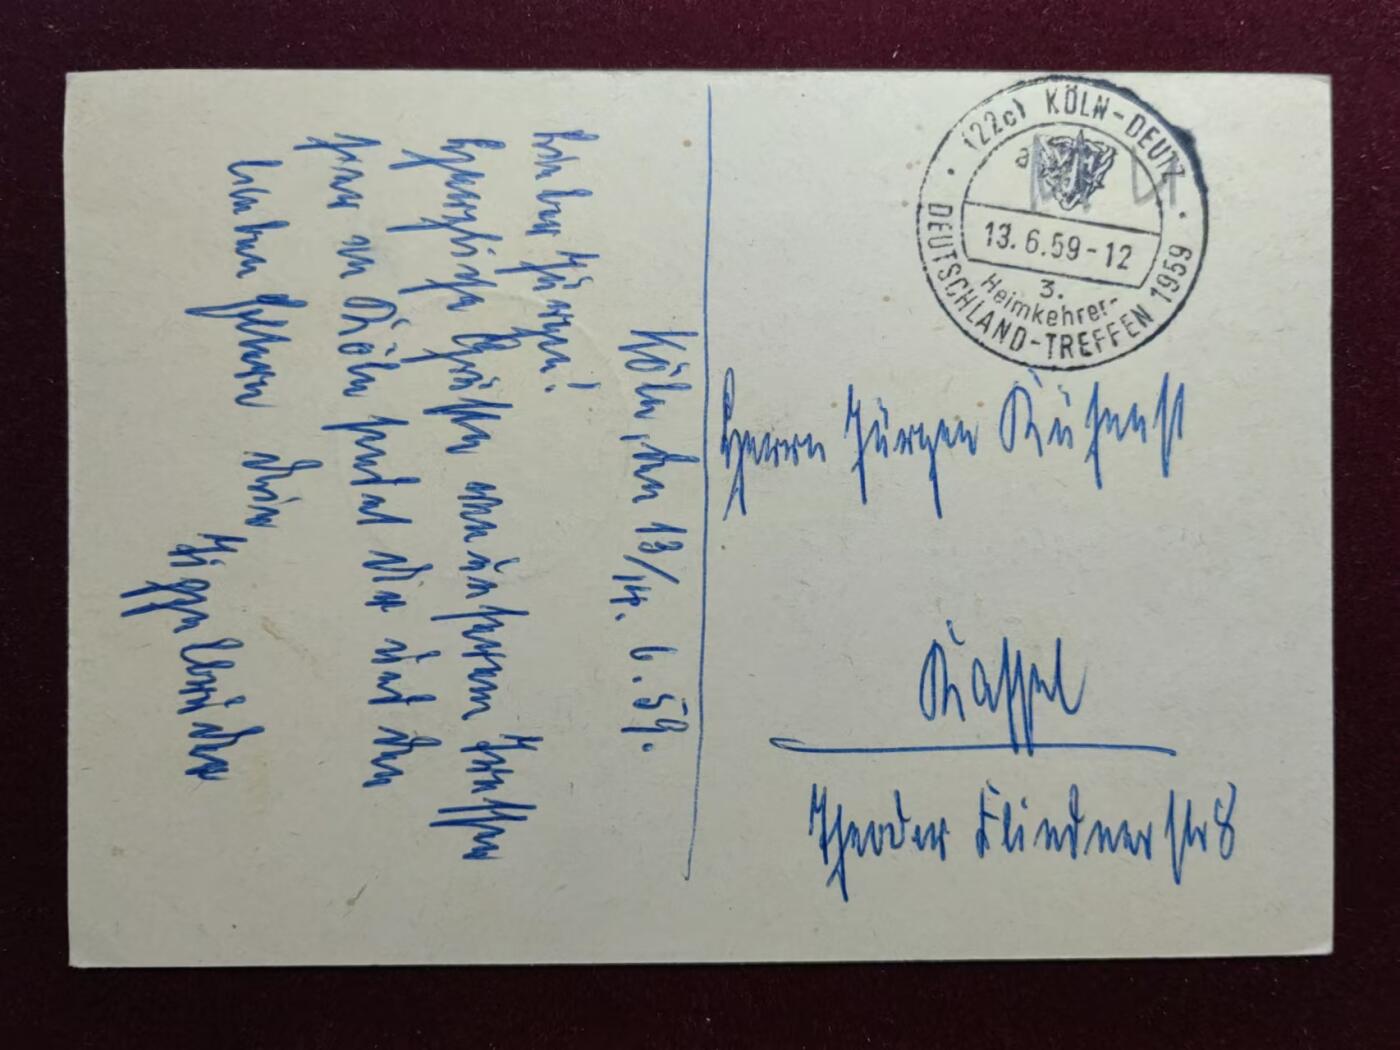 Köln, den 13/14. 6. 59.
Lieber Jürgen!
Herzliche Grüße von unserem Treffen
hier in Köln sendet dir und den
lieben Eltern dein
(22c) KÖLN-DEUTZ
a
13.6.59-12
3.
Heimkehrer-
DEUTSCHLAND-TREFFEN 1959
Herrn Jürgen
Kassel
Theodor Fliednerstr 8